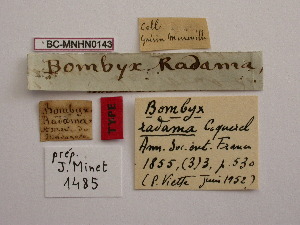 Coll.
BC-MNHN0143
Bombyx. Radama,
Bombyx
Radama
TYPE
Bombyx
radama Coquerel
Ann. Soc. ent. France
1855, (3) 3, p. 530
(P. Viette Juin 1952)
prép.
J. Minet
1485